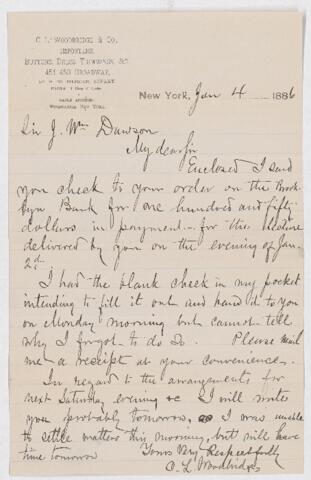 C. L. WOODBRIDGE & CO.
IMPORTERS,
BUTTONS, DRESS TRIMMINGS, &C.
451-453 BROADWAY,
New York, Jan 4 1886
Sir J. Wm Dawson
My dear Sir
Enclosed I send
you check to your order on the Brook-
lyn Bank for one hundred and fifty
dollars in payment for the lecture
delivered by you on the evening of Jan.
2d.
I had the blank check in my pocket
intending to fill it out and hand it to you
on Monday morning but cannot tell
why I forgot to do so. Please mail
me a receipt at your convenience.
In regard to the arrangements for
next Saturday evening &c I will write
you probably tomorrow, as I was unable
to settle matters this morning, but will have
time tomorrow
Yours Very Respectfully
C. L. Woodbridge